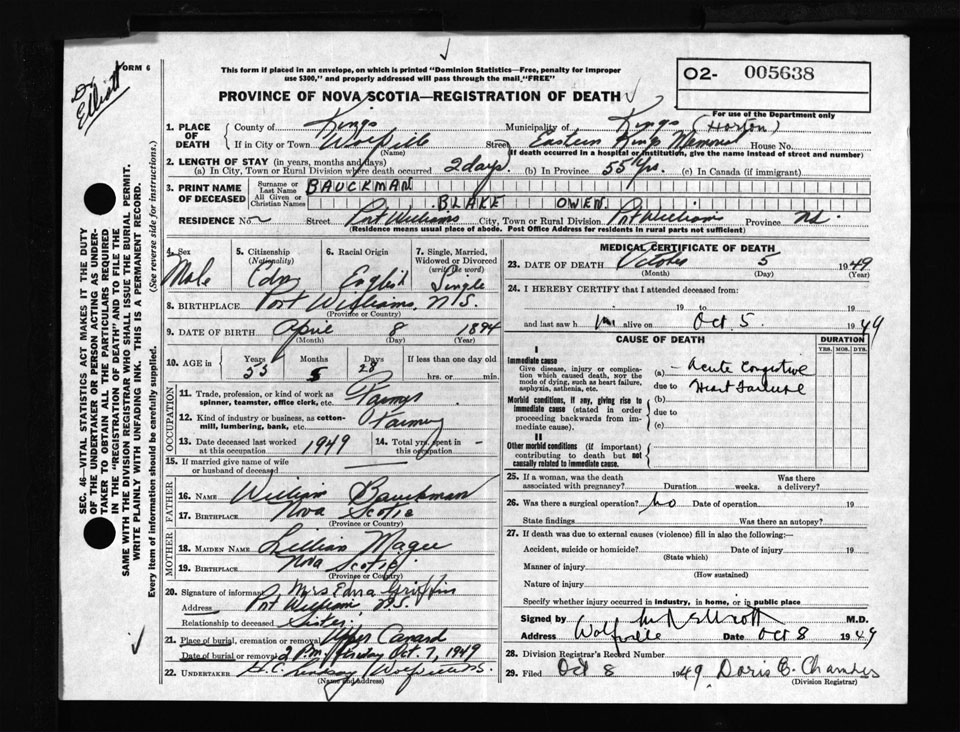 FORM 6
Dr Elliott
This form if placed in an envelope, on which is printed "Dominion Statistics—Free, penalty for improper
use $300," and properly addressed will pass through the mail, "FREE"
PROVINCE OF NOVA SCOTIA—REGISTRATION OF DEATH
02- 005638
For use of the Department only
SEC. 46—VITAL STATISTICS ACT MAKES IT THE DUTY
OF THE UNDERTAKER OR PERSON ACTING AS UNDER-
TAKER TO OBTAIN ALL THE PARTICULARS REQUIRED
IN THE "REGISTRATION OF DEATH" AND TO FILE THE
SAME WITH THE DIVISION REGISTRAR WHO SHALL ISSUE THE BURIAL PERMIT.
WRITE PLAINLY WITH UNFADING INK. THIS IS A PERMANENT RECORD.
Every item of information should be carefully supplied. (See reverse side for instructions.)
1. PLACE OF DEATH
County of Kings Municipality of Kings (Horton)
If in City or Town Wolfville Street Eastern Kings Memorial House No.
(Name) (If death occurred in a hospital or institution, give the name instead of street and number)
2. LENGTH OF STAY (in years, months and days)
(a) In City, Town or Rural Division where death occurred 2 days. (b) In Province 55 yrs. (c) In Canada (if immigrant)
3. PRINT NAME OF DECEASED
Surname or Last Name BAUCKMAN
All Given or Christian Names BLAKE OWEN
RESIDENCE No. Street Port Williams City, Town or Rural Division Port Williams Province N.S.
(Residence means usual place of abode. Post Office Address for residents in rural parts not sufficient)
4. Sex Male
5. Citizenship (Nationality) Cdn
6. Racial Origin English
7. Single, Married, Widowed or Divorced (write the word) Single
8. BIRTHPLACE Port Williams, N.S.
(Province or Country)
9. DATE OF BIRTH April 8 1894
(Month) (Day) (Year)
10. AGE in Years 55 Months 5 Days 28 If less than one day old
hrs. or min.
OCCUPATION
11. Trade, profession, or kind of work as
spinner, teamster, office clerk, etc. Farmer
12. Kind of industry or business, as cotton-
mill, lumbering, bank, etc. Farming
13. Date deceased last worked
at this occupation 1949
14. Total yrs. spent in
this occupation -
15. If married give name of wife
or husband of deceased
FATHER
16. NAME William Bauckman
17. BIRTHPLACE Nova Scotia
(Province or Country)
MOTHER
18. MAIDEN NAME Lillian Magee
19. BIRTHPLACE Nova Scotia
(Province or Country)
20. Signature of informant Mrs Edna Griffin
Address Port Williams N.S.
Relationship to deceased Sister
21. Place of burial, cremation or removal Upper Canard
Date of burial or removal 2 P.M. Friday Oct. 7, 1949
22. UNDERTAKER H.C. Lindsay Wolfville N.S.
(Name and Address)
MEDICAL CERTIFICATE OF DEATH
23. DATE OF DEATH October 5 1949
(Month) (Day) (Year)
24. I HEREBY CERTIFY that I attended deceased from:
19 to 19
and last saw him alive on Oct. 5. 1949
CAUSE OF DEATH
DURATION
YRS. MOS. DYS.
I
Immediate cause
Give disease, injury or complica-
tion which caused death, not the
mode of dying, such as heart failure,
asphyxia, asthenia, etc.
(a) Acute Congestive
due to Heart Failure
Morbid conditions, if any, giving rise to
immediate cause (stated in order
proceeding backwards from im-
mediate cause).
(b)
due to
(c)
II
Other morbid conditions (if important)
contributing to death but not
causally related to immediate cause.
25. If a woman, was the death
associated with pregnancy? Duration weeks. Was there
a delivery?
26. Was there a surgical operation? no Date of operation 19
State findings Was there an autopsy?
27. If death was due to external causes (violence) fill in also the following:—
Accident, suicide or homicide? Date of injury 19
(State which)
Manner of injury
(How sustained)
Nature of injury
Specify whether injury occurred in industry, in home, or in public place
Signed by Elliott M.D.
Address Wolfville Date Oct 8 1949
28. Division Registrar's Record Number
29. Filed Oct 8 1949 Doris C. Chambers
(Division Registrar)